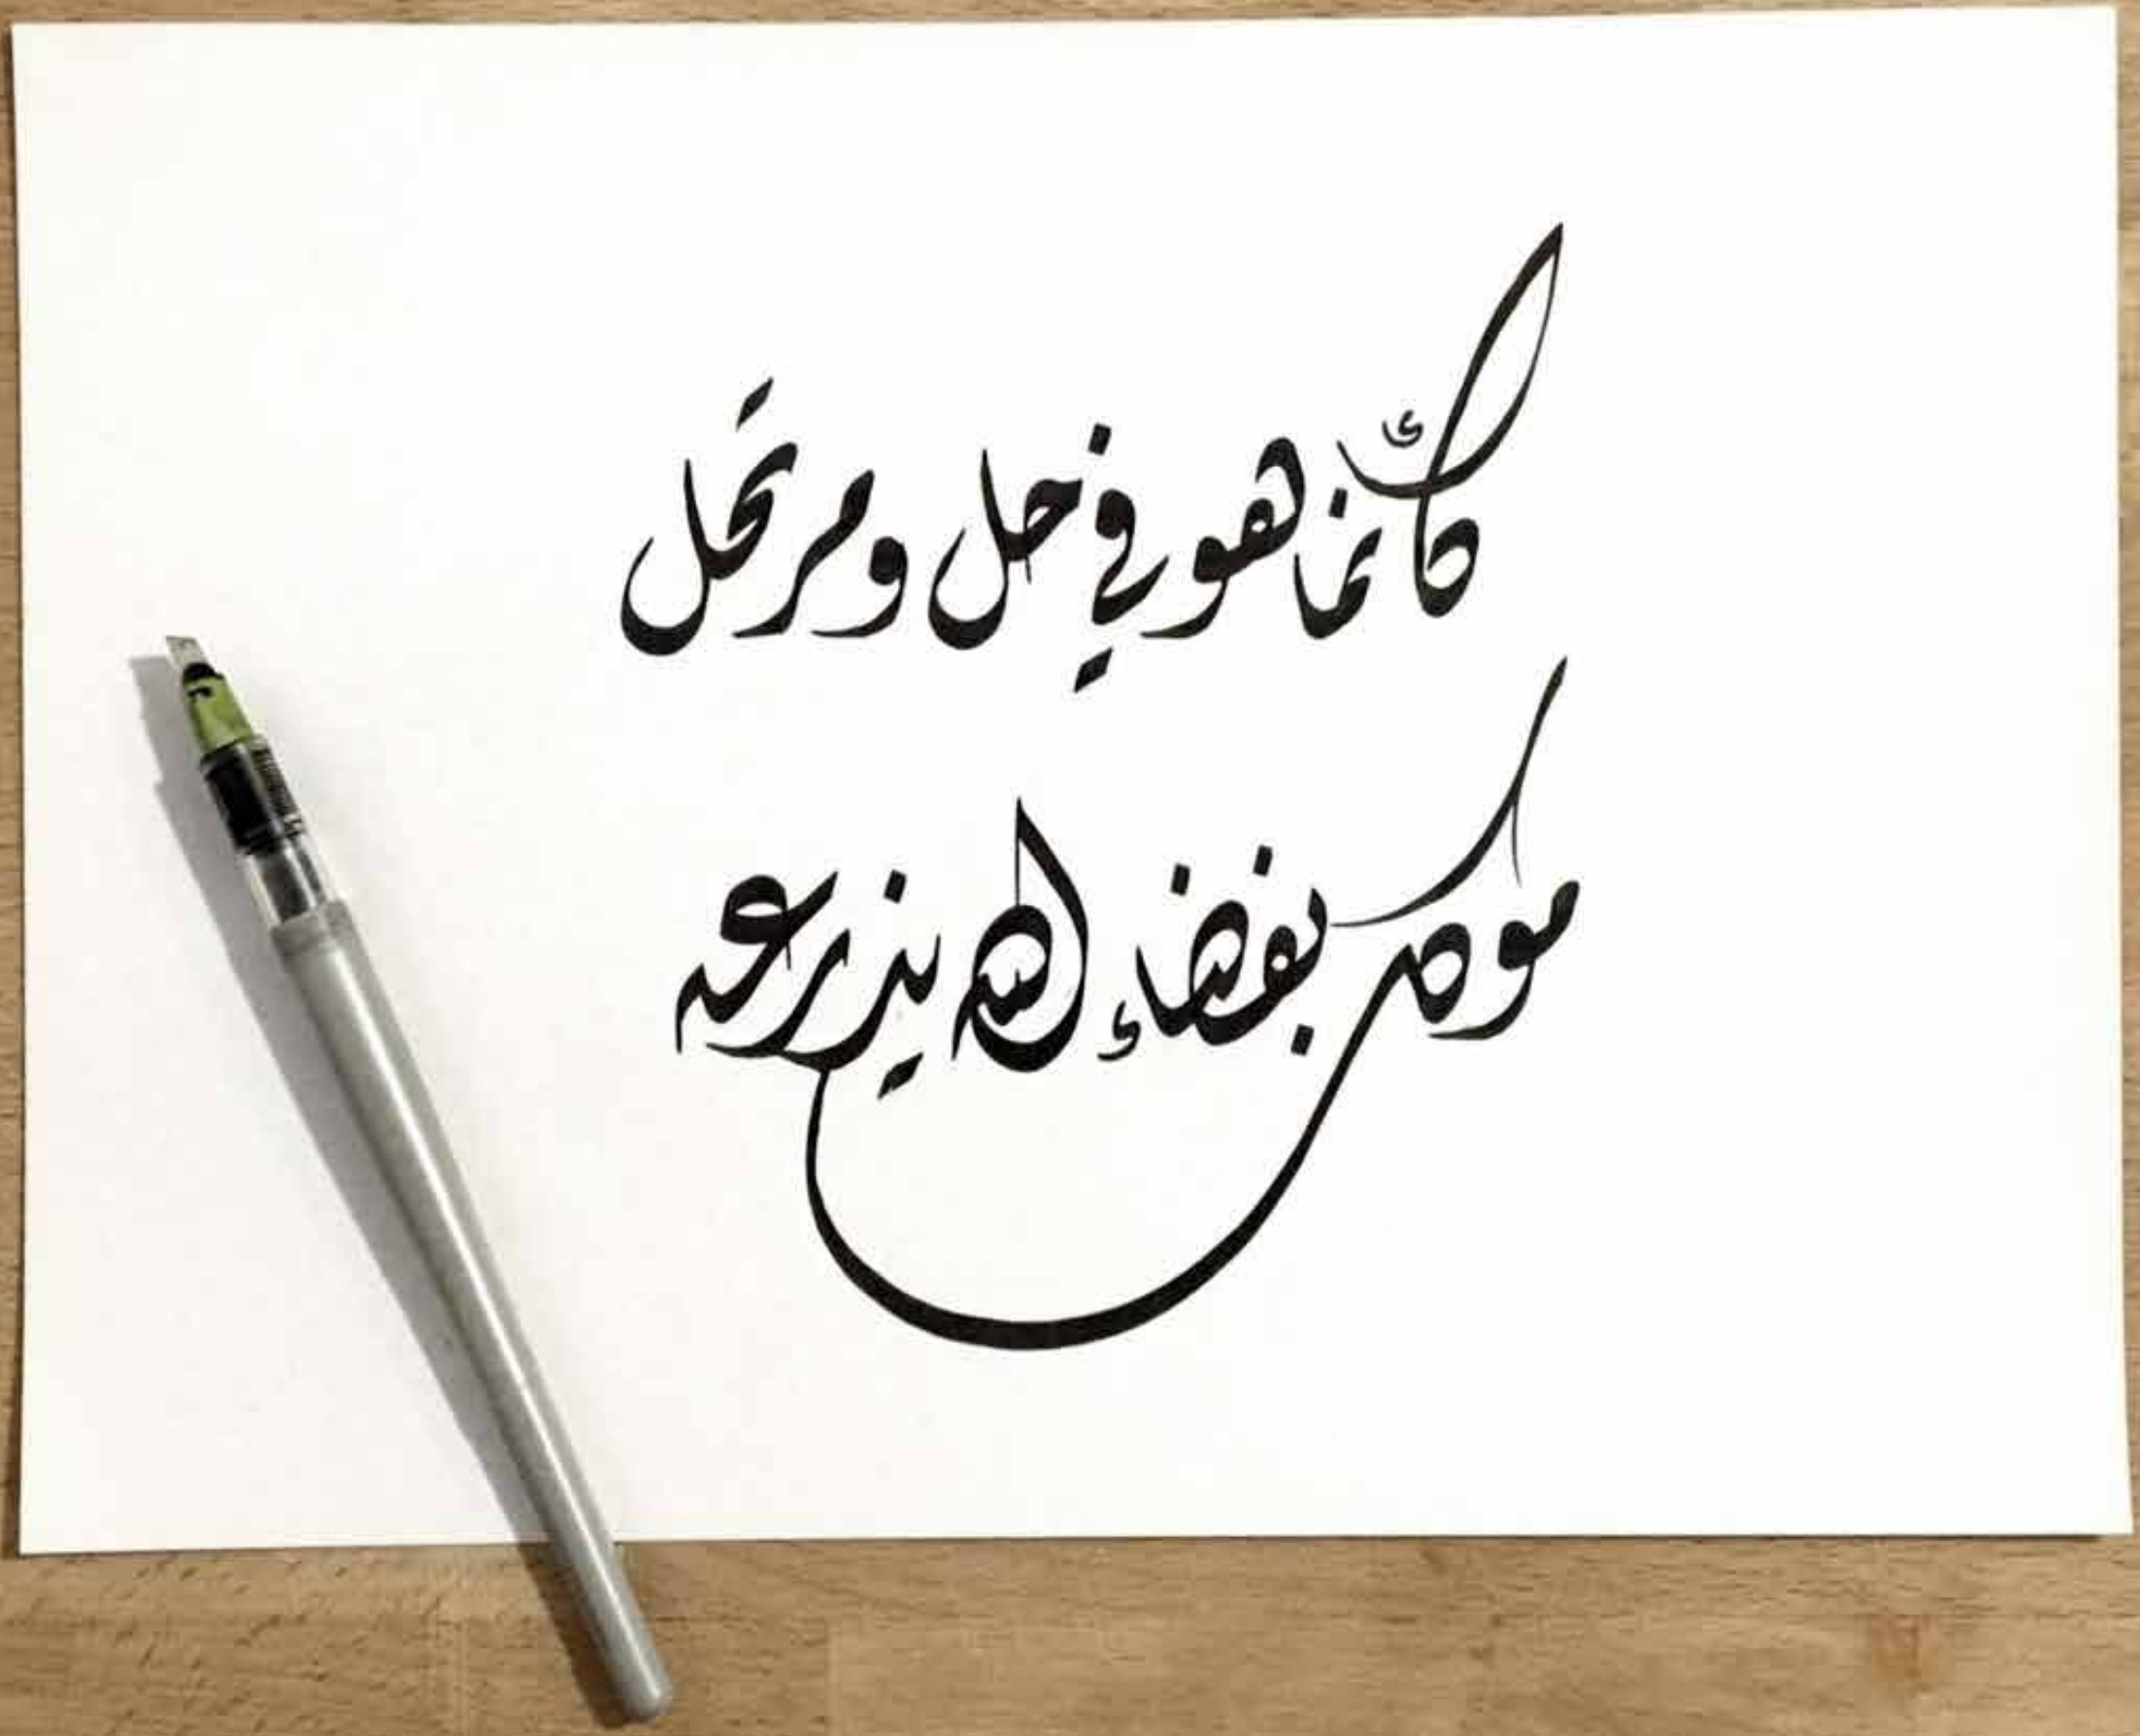 كأنما هو في حل ومرتحل
موكل بفضاء الله يذرعه